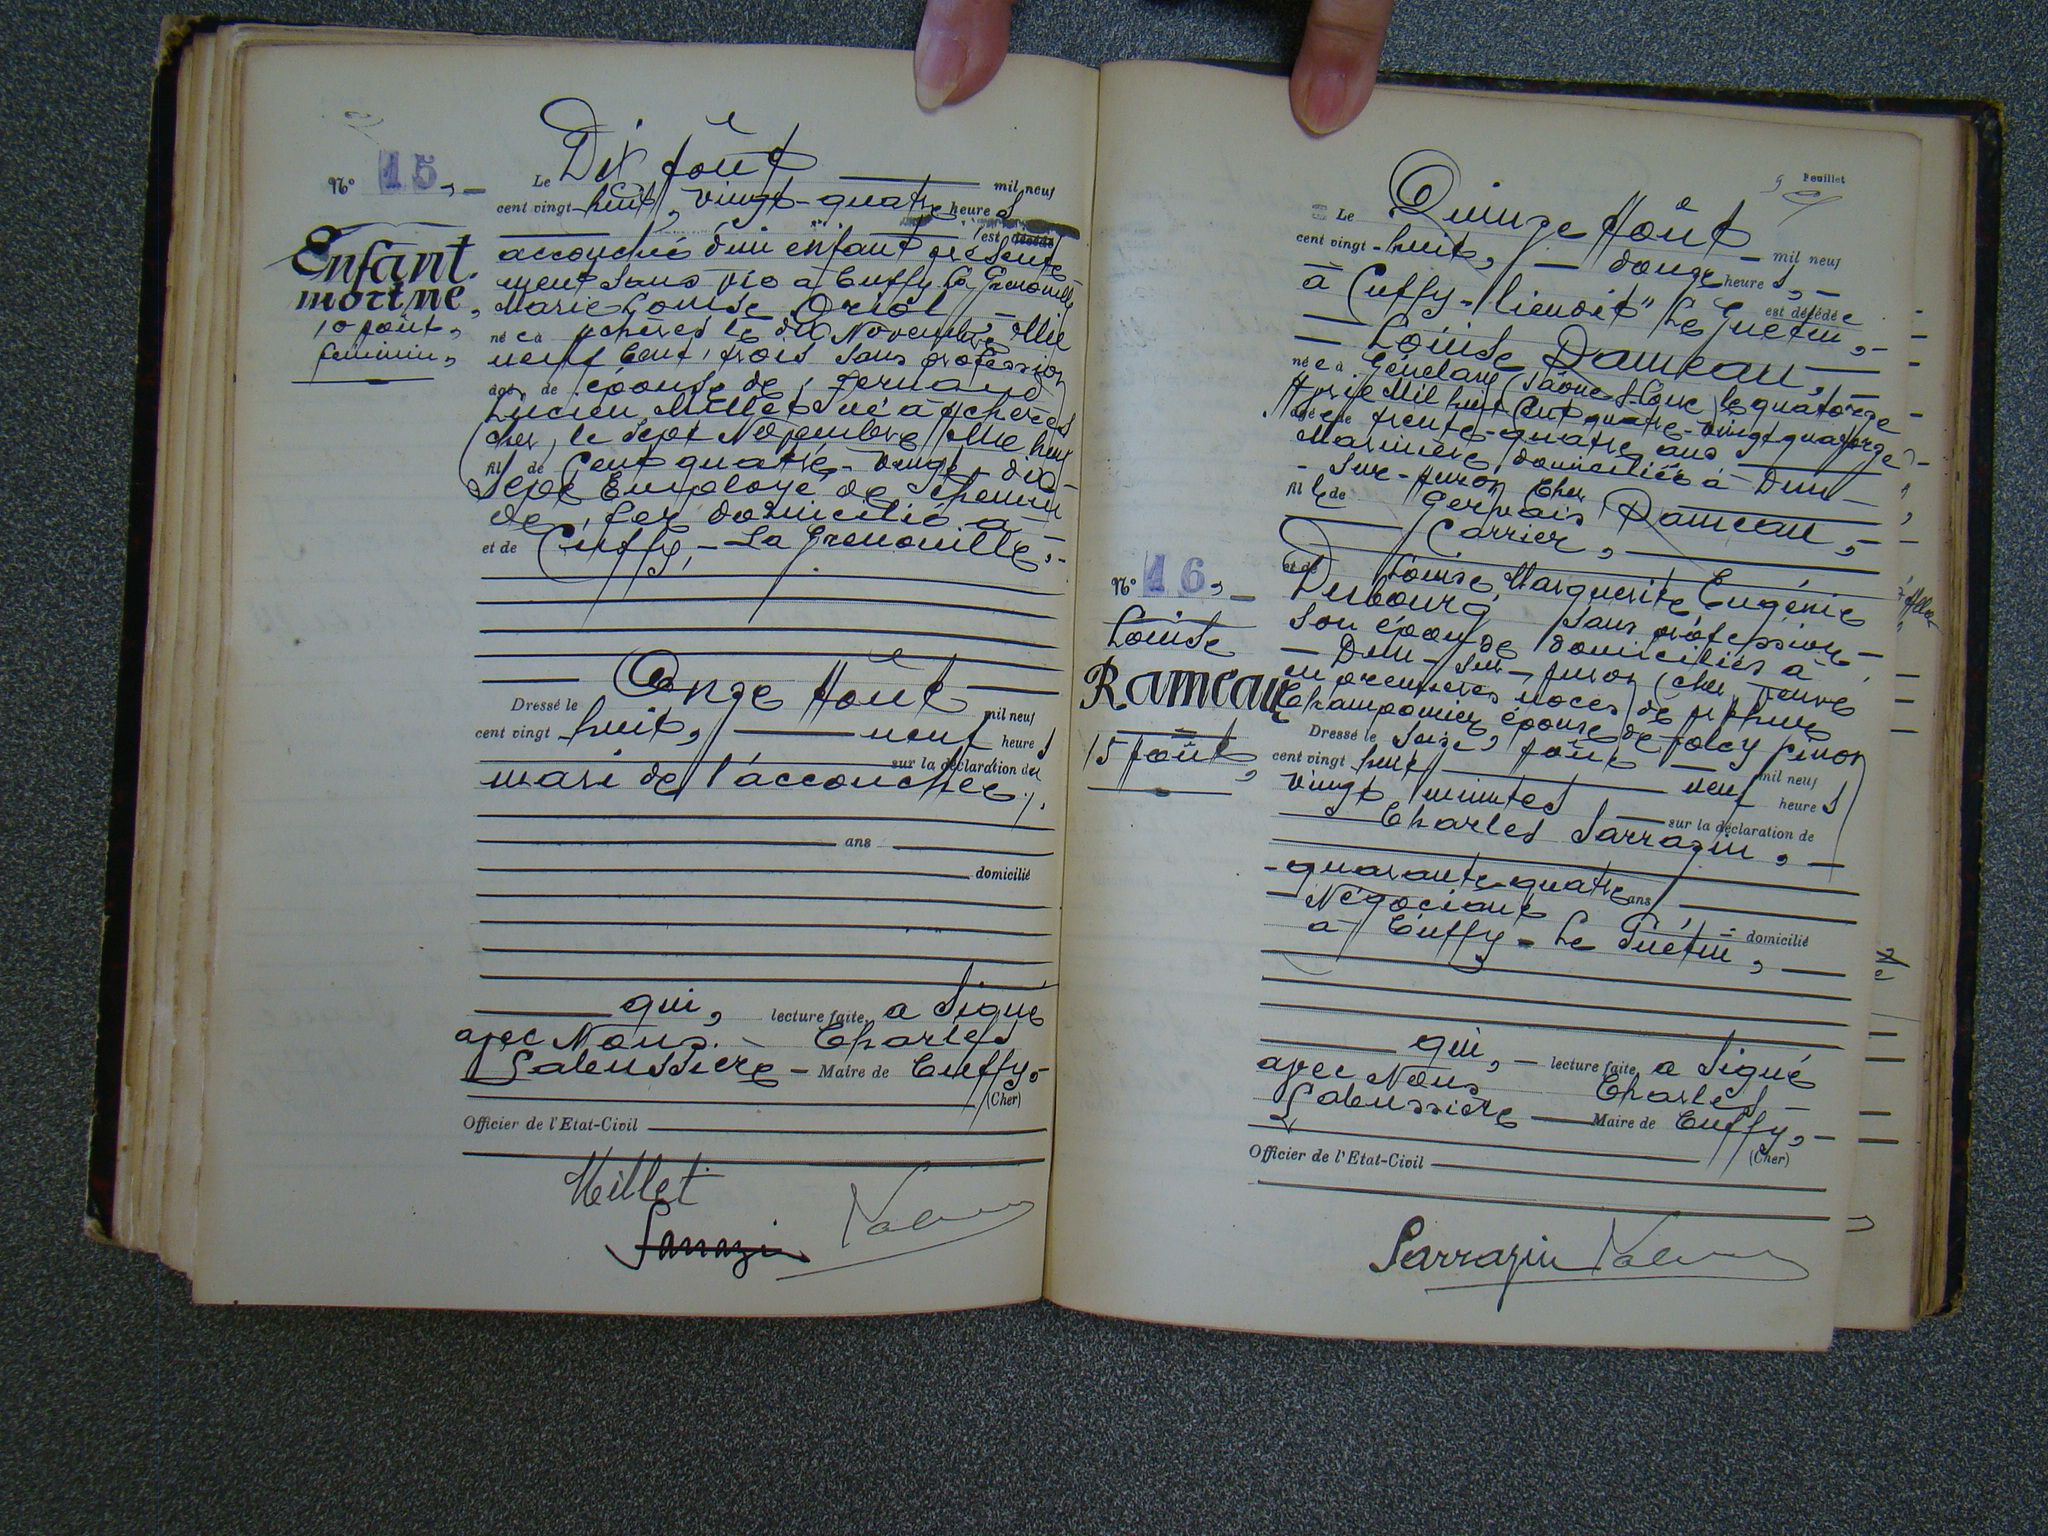 N° 15,
Enfant
mort né,
10 Août,
féminin,
Le Dix Août mil neuf
cent vingt-huit, vingt-quatre heures
est
accouchée d'un enfant présente
ment sans vie à Cuffy La Grenouille
Marie-Louise Oriol
née à Achères le dix Novembre Mil
neuf Cent trois sans profession
agé de épouse de Fernand
Lucien Millet né à Achères
(Cher) le Sept Novembre Mil huit
fils de Cent quatre-vingt-dix-
Sept Employé de Chemin
de fer domicilié à
et de Cuffy, - La Grenouille,-
Dressé le Onze Août mil neuf
cent vingt huit, neuf heures
sur la déclaration du
mari de l'accouchée,.
ans
domicilié
qui, lecture faite, a signé
avec Nous. - Charles
Labussière - Maire de Cuffy,-
(Cher)
Officier de l'Etat-Civil
Millet
Sarrazin
Feuillet
9
Le Quinze Août mil neuf
cent vingt-huit, - douze heures,-
est décédée
à Cuffy-lieudit "Le Guétin,-
Louise Rameau,-
née à Génelard (Saône-&-Loire) le quatorze
Avril Mil huit Cent quatre-vingt quatorze
agée de trente-quatre ans
Marinière domiciliée à Dun-
-sur-Auron Cher
fille de Gervais Rameau,-
Carrier,
et de Louise, Marguerite Eugénie
N° 16,
Louise
Rameau
15 Août,
Debourg sans profession
son épouse domiciliés à -
- Dun-sur-Auron (Cher) veuve
en premières noces de Arthur
Champomier, épouse de
Dressé le Seize, Août mil neuf
cent vingt huit neuf heures
vingt minutes
sur la déclaration de
Charles Sarrazin, -
-quarante-quatre ans
Négociant domicilié
à Cuffy - Le Guétin,
qui, - lecture faite, a signé
avec Nous Charles
Labussière Maire de Cuffy,-
(Cher)
Officier de l'Etat-Civil
Sarrazin